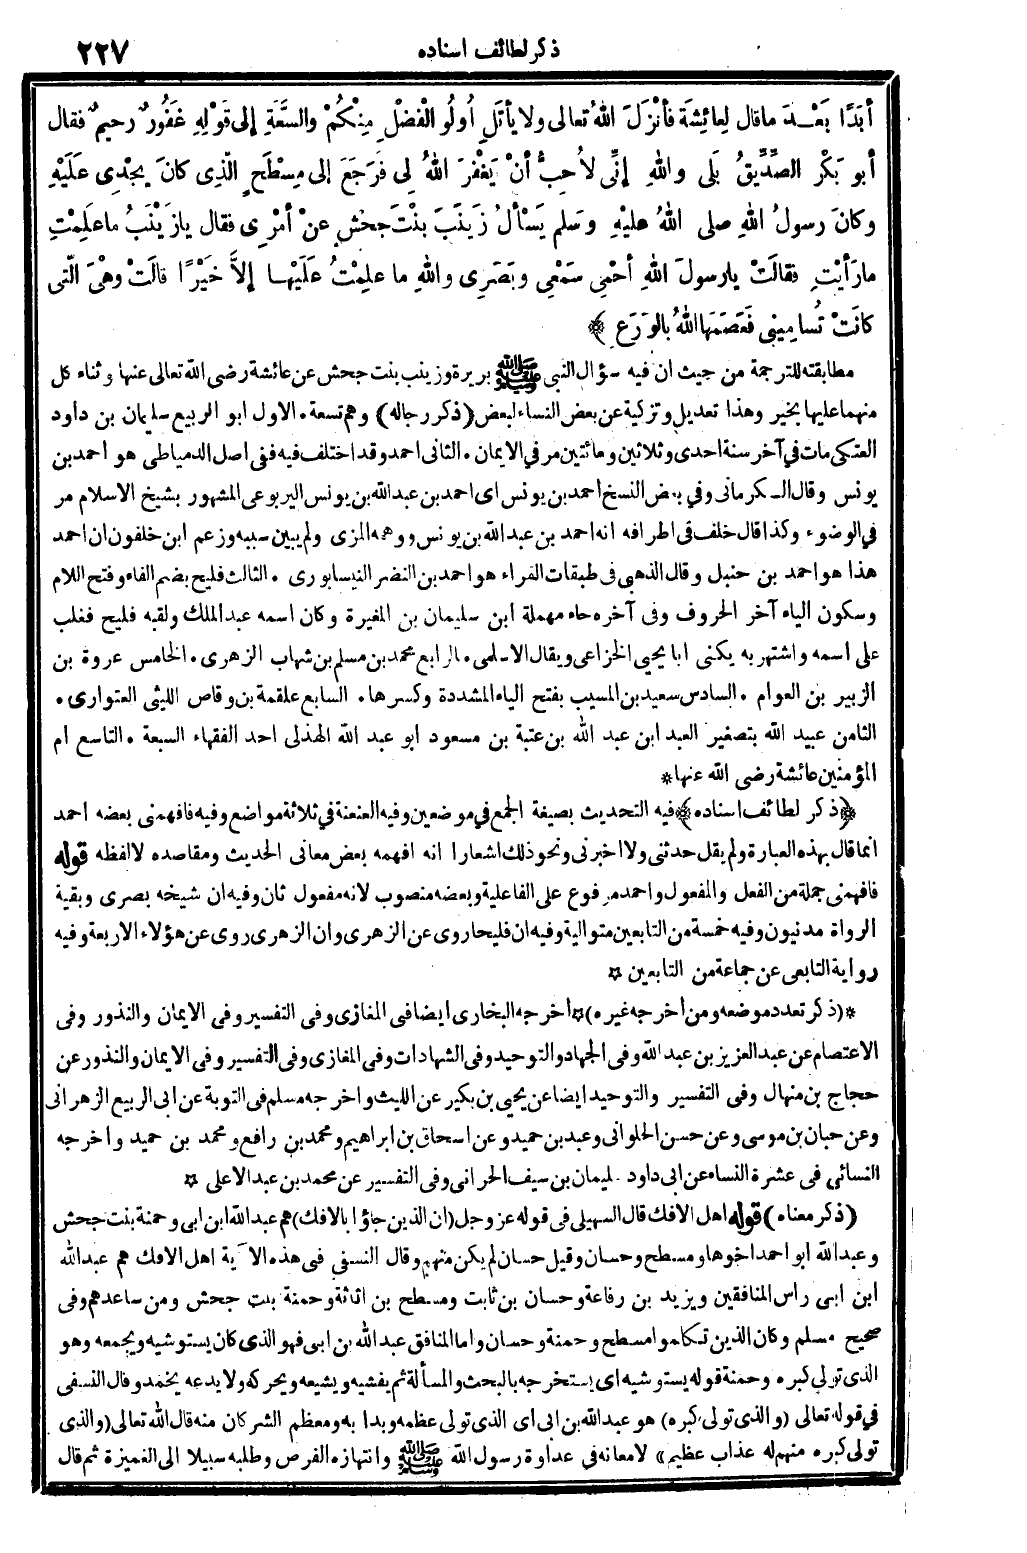 ذكر لطائف اسناده ٢٢٧
أبَدًا بَعْدَ ماقال لِعائِشَةَ فأنْزَلَ اللهُ تعالى ولا يأتَلِ أُولُو الْفَضْلِ مِنْكُمْ والسَّعَةِ إلى قَوْلِهِ غَفُورٌ رحيمٌ فقال
أبو بَكْرٍ الصِّدِّيقُ بَلى واللهِ إنِّى لأُحِبُّ أنْ يَغْفِرَ اللهُ لِى فَرَجَعَ إلى مِسْطَحٍ الّذِى كانَ يُجْدِى عَلَيْهِ
وكانَ رسولُ اللهِ صلى اللهُ عليْهِ وسَلم يَسْألُ زَيْنَبَ بِنْتَ جَحْشٍ عنْ أمْرِى فقال يازَيْنَبُ ماعَلِمْتِ
مارَأيْتِ فقالَتْ يارسولَ اللهِ أحْمِى سَمْعِى وبَصَرِى واللهِ ما علِمْتُ عَلَيْها إلاَّ خَيْرًا قالَتْ وهْىَ الّتى
كانَتْ تُسامِينِى فَعَصَمَها اللهُ بالوَرَعِ ﴾
مطابقته للترجمة من حيث ان فيه سؤال النبى ﷺ بريرة وزينب بنت جحش عن عائشة رضى الله تعالى عنها وثناء كل
منهما عليها بخير وهذا تعديل وتزكية عن بعض النساء لبعض (ذكر رجاله) وهم تسعة. الاول ابو الربيع سليمان بن داود
العتكى مات فى آخر سنة احدى وثلاثين ومائتين مر فى الايمان. الثانى احمد وقد اختلف فيه ففى اصل الدمياطى هو احمد بن
يونس وقال الكرمانى وفى بعض النسخ احمد بن يونس اى احمد بن عبد الله بن يونس اليربوعى المشهور بشيخ الاسلام مر
فى الوضوء وكذا قال خلف فى اطرافه انه احمد بن عبد الله بن يونس ووهمه المزى ولم يبين سببه وزعم ابن خلفون ان احمد
هذا هو احمد بن حنبل وقال الذهبى فى طبقات القراء هو احمد بن النضر النيسابورى. الثالث فليح بضم الفاء وفتح اللام
وسكون الياء آخر الحروف وفى آخره حاء مهملة ابن سليمان بن المغيرة وكان اسمه عبد الملك ولقبه فليح فغلب
على اسمه واشتهر به يكنى ابا يحيى الخزاعى ويقال الاسلمى. الرابع محمد بن مسلم بن شهاب الزهرى. الخامس عروة بن
الزبير بن العوام. السادس سعيد بن المسيب بفتح الياء المشددة وكسرها. السابع علقمة بن وقاص الليثى العتوارى.
الثامن عبيد الله بتصغير العبد ابن عبد الله بن عتبة بن مسعود ابو عبد الله الهذلى احد الفقهاء السبعة. التاسع ام
المؤمنين عائشة رضى الله عنها*
﴿ذكر لطائف اسناده﴾ فيه التحديث بصيغة الجمع فى موضعين وفيه العنعنة فى ثلاثة مواضع وفيه فافهمنى بعضه احمد
انما قال بهذه العبارة ولم يقل حدثنى ولا اخبرنى ونحو ذلك اشعارا انه افهمه بعض معانى الحديث ومقاصده لا لفظه قوله
فافهمنى جملة من الفعل والمفعول واحمد مرفوع على الفاعلية وبعضه منصوب لانه مفعول ثان وفيه ان شيخه بصرى وبقية
الرواة مدنيون وفيه خمسة من التابعين متوالية وفيه ان فليحا روى عن الزهرى وان الزهرى روى عن هؤلاء الاربعة وفيه
رواية التابعى عن جماعة من التابعين ☆
*(ذكر تعدد موضعه ومن اخرجه غيره)☆ اخرجه البخارى ايضا فى المغازى وفى التفسير وفى الايمان والنذور وفى
الاعتصام عن عبد العزيز بن عبد الله وفى الجهاد والتوحيد وفى الشهادات وفى المغازى وفى التفسير وفى الايمان والنذور عن
حجاج بن منهال وفى التفسير والتوحيد ايضا عن يحيى بن بكير عن الليث واخرجه مسلم فى التوبة عن ابى الربيع الزهرانى
وعن حبان بن موسى وعن حسن الحلوانى وعبد بن حميد وعن اسحاق بن ابراهيم ومحمد بن رافع ومحمد بن حميد واخرجه
النسائى فى عشرة النساء عن ابى داود سليمان بن سيف الحرانى وفى التفسير عن محمد بن عبد الاعلى ☆
(ذكر معناه) قوله اهل الافك قال السهيلى فى قوله عز وجل (ان الذين جاؤا بالافك) هم عبد الله ابن ابى وحمنة بنت جحش
وعبد الله ابو احمد اخوها ومسطح وحسان وقيل حسان لم يكن منهم وقال النسفى فى هذه الآية اهل الافك هم عبد الله
ابن ابى راس المنافقين ويزيد بن رفاعة وحسان بن ثابت ومسطح بن اثاثة وحمنة بنت جحش ومن ساعدهم وفى
صحيح مسلم وكان الذين تكلموا مسطح وحمنة وحسان واما المنافق عبد الله بن ابى فهو الذى كان يستوشيه ويجمعه وهو
الذى تولى كبره وحمنة قوله يستوشيه اى يستخرجه بالبحث والمسألة ثم يفشيه ويشيعه ويحركه ولا يدعه يخمد وقال النسفى
فى قوله تعالى (والذى تولى كبره) هو عبد الله بن ابى اى الذى تولى عظمه وبدا به ومعظم الشر كان منه قال الله تعالى (والذى
تولى كبره منهم له عذاب عظيم) لامعانه فى عداوة رسول الله ﷺ وانتهازه الفرص وطلبه سبيلا الى الغميزة ثم قال